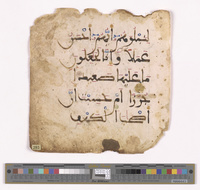 لنبلوهم أيهم أحسن
عملا وإنا لجعلون
ما عليها صعيدا
جرزا أم حسبت أن
أصحب الكهف